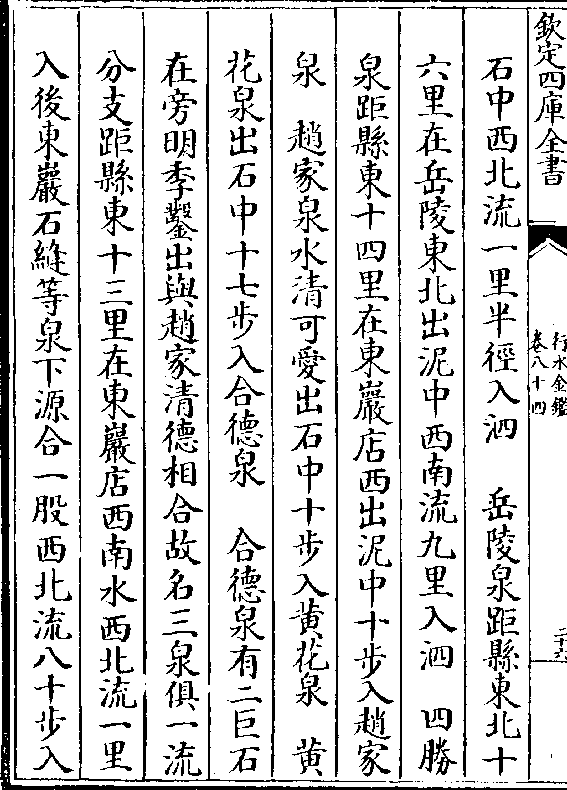 欽定四庫全書
行水金鑑
卷八十四
石中西北流一里半徑入泗　岳陵泉距縣東北十
六里在岳陵東北出泥中西南流九里入泗　四勝
泉距縣東十四里在東巖店西出泥中十步入趙家
泉　趙家泉水清可愛出石中十步入黄花泉　黄
花泉出石中十七步入合德泉　合德泉有二巨石
在旁明季鑿出與趙家清德相合故名三泉俱一流
分支距縣東十三里在東巖店西南水西北流一里
入後東巖石縫等泉下源合一股西北流八十步入